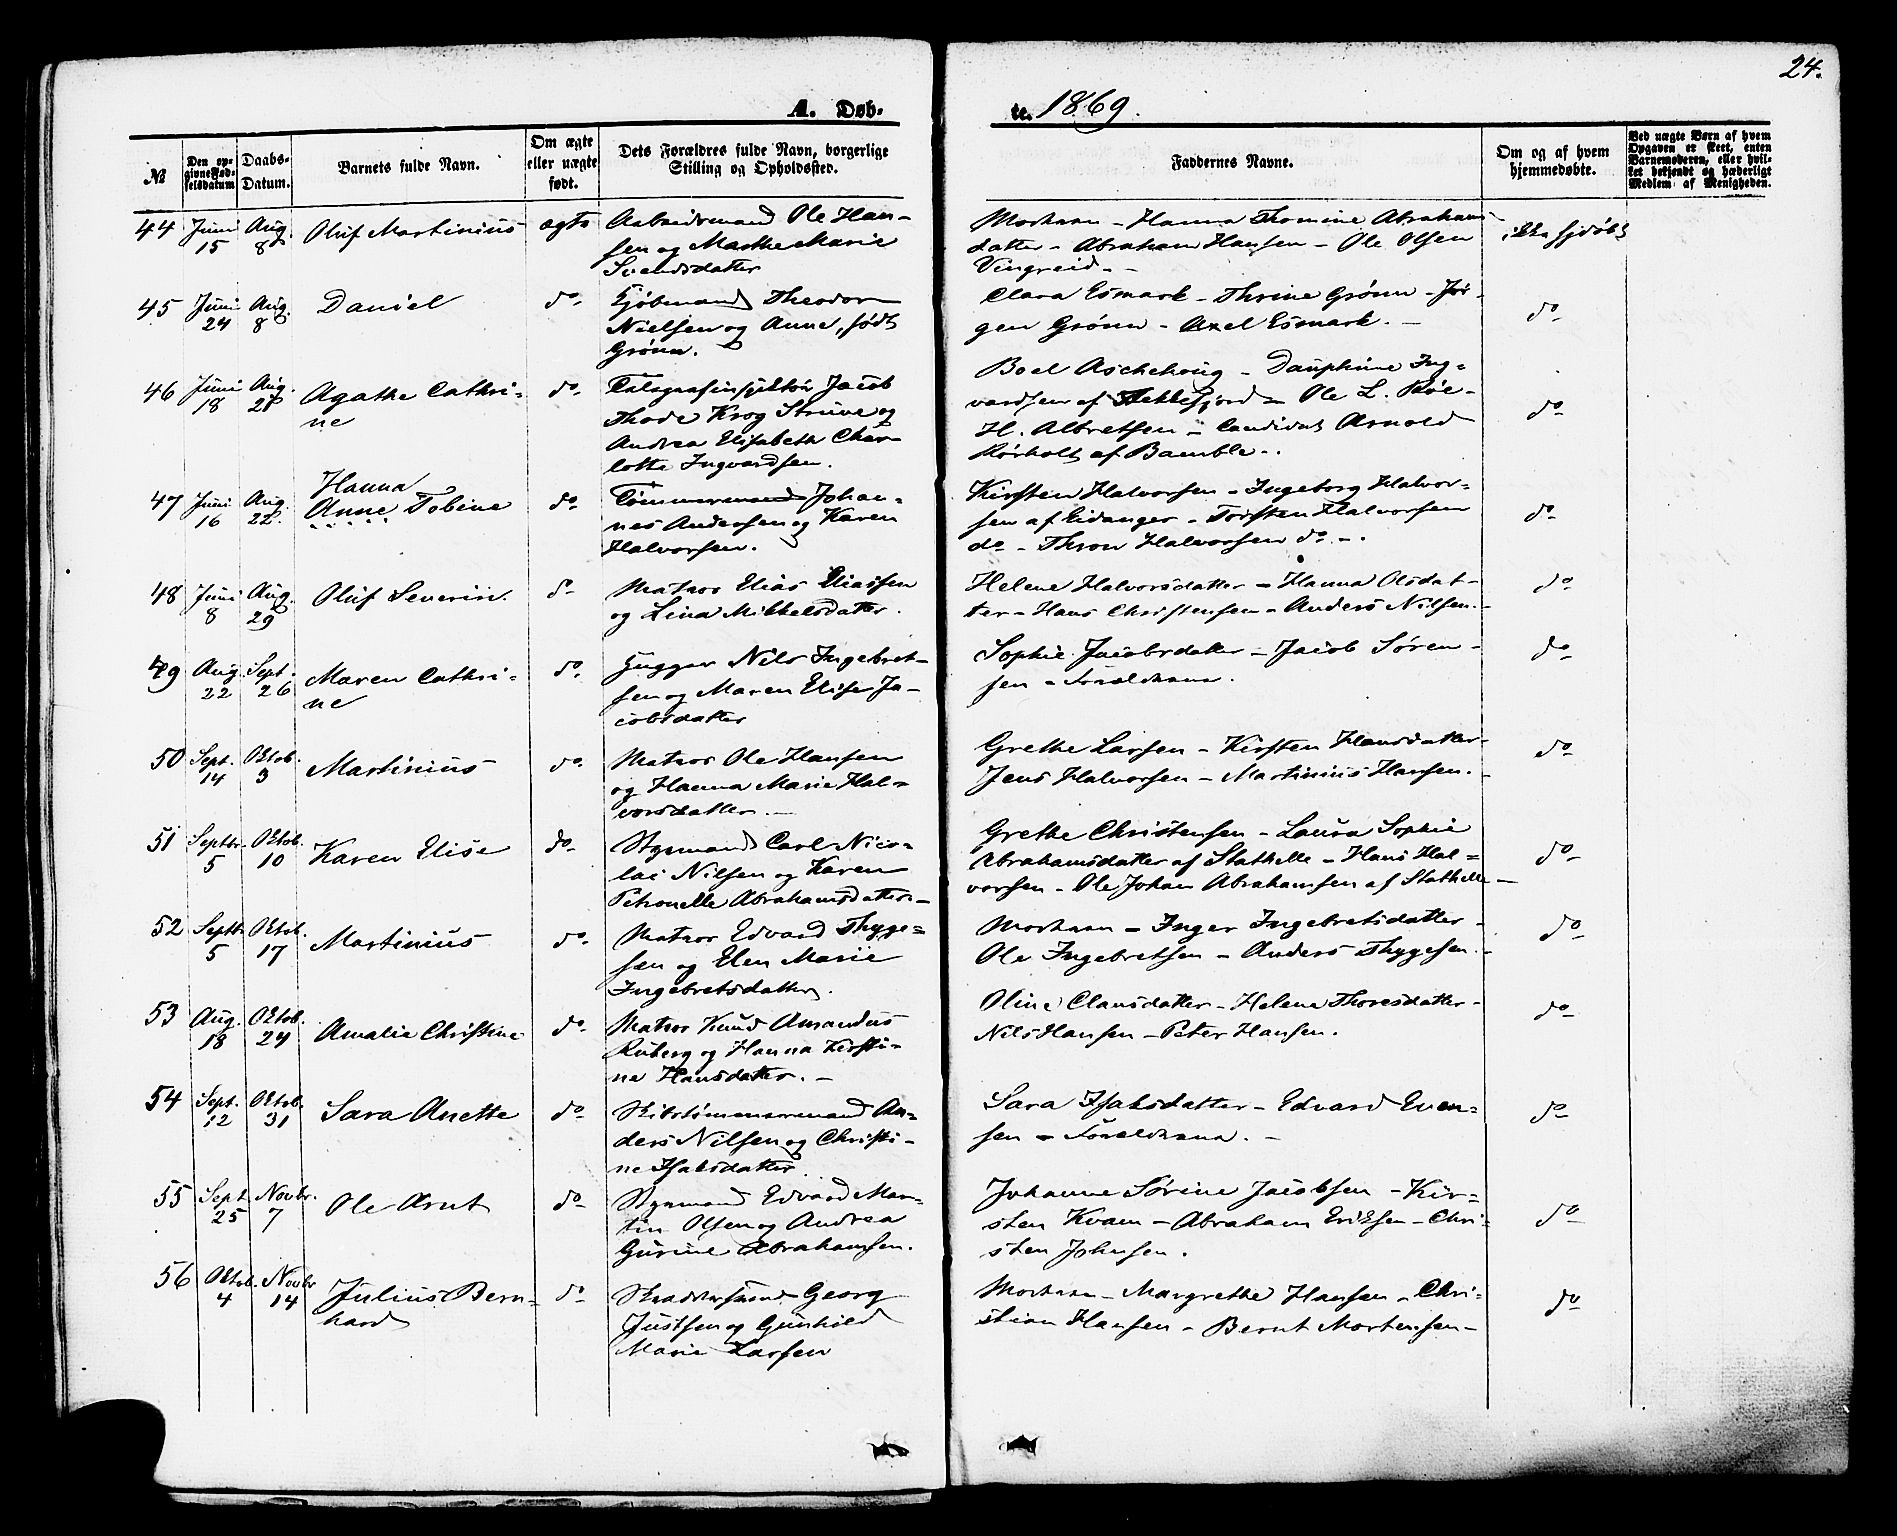 24.
A. Døb-
te. 1869.
№
Den op-
givne Fød-
selsdatum
Daabs-
Datum.
Barnets fulde Navn.
Om ægte
eller uægte
født.
Dets Forældres fulde Navn, borgerlige
Stilling og Opholdssted.
Faddernes Navne.
Om og af hvem
hjemmedøbte.
Ved uægte Børn af hvem
Opgaven er skeet, enten
Barnemoderen, eller hvil-
ket bekjendt og hæderligt
Medlem af Menigheden.
44 Juni 15 Aug. 8 Oluf Martinius ægte
Arbeidsmand Ole Han-
sen og Marthe Marie
Svendsdatter
Modr. Hanna Thomine Abrahams-
datter - Abraham Hansen - Ole Olsen
Vingreid. -
ikke hjdøbt
45 Juni 24 Aug. 8 Daniel do.
Kjøbmand Theodor
Nielsen og Anne, født
Grönn.
Clara Esmark - Thrine Grönn - Jør-
gen Grönn - Axel Esmark. -
do
46 Juni 18 Aug. 28 Agathe Cathri-
ne do.
Telegrafinspektør Jacob
Thode Krog Struve og
Andrea Elisabeth Char-
lotte Ingvardsen.
Boel Aschehoug - Dauphine Ing-
vardsen af Flekkefjord - Ole L. Röe -
H. Albretsen - Candidat Arnold
Rörholt af Bamble. -
do
47 Juni 16 Aug. 22. Hanna
Anne Tobine do.
Tømmermand Johan-
nes Andersen og Karen
Halvorsen.
Kirsten Halvorsen - Ingeborg Halvor-
sen af Eidanger - Torsten Halvorsen
do - Thron Halvorsen do -.
do
48 Juni 8 Aug. 29 Oluf Severin. do
Matros Elias Eliassen
og Lina Mikkelsdatter.
Helene Halvorsdatter - Hanna Olsdat-
ter - Hans Christensen - Anders Nilsen. -
do
49 Aug. 22 Sept. 26 Maren Cathri-
ne do.
Nils Ingebret-
sen og Maren Elise Ja-
cobsdatter
Sophie Jacobsdatter - Jacob Sören-
sen - Forældrene.
do
50 Sept. 14 Oktob. 3 Martinius do.
Matros Ole Hansen
og Hanna Marie Hal-
vorsdatter. -
Grethe Larsen - Kirsten Hansdatter -
Jens Halvorsen - Martinius Hansen. -
do
51 Septbr. 5 Oktob. 10 Karen Elise do
Styrmand Carl Nico-
lai Nilsen og Karen
Petronelle Abrahamsdatter. -
Grethe Christensen - Laura Sophie
Abrahamsdatter af Stathelle - Hans Hal-
vorsen - Ole Johan Abrahamsen af Stathelle -
do
52 Septbr. 5 Oktob. 17 Martinius do.
Matros Edvard Thyge-
sen og Elen Marie
Ingebretsdatter.
Inger Ingebretsdatter -
Ole Ingebretsen - Anders Thygesen. -
do
53 Aug. 18 Oktob. 24 Amalie Christine do.
Matros Knud Amandus
Ruberg og Hanna Kirsti-
ne Hansdatter. -
Oline Clausdatter - Helene Thoresdatter -
Nils Hansen - Peter Hansen.
do
54 Sept. 12 Oktob. 31 Sara Anette do
Skibstømmermand An-
ders Nilsen og Christi-
ne Isaksdatter
Sara Isaksdatter - Edvard Even-
sen - Forældrene. -
do
55 Sept. 25 Novbr. 7 Ole Arnt do
Styrmand Edvard Mar-
tin Olsen og Andrea
Gurine Abrahamsen.
Johanne Sörine Jacobsen - Kir-
sten Kvam - Abraham Eriksen - Chri-
sten Johnsen.
do
56 Oktob. 4 Novbr 14 Julius Bern-
hard do
Georg
Justsen og Gunhild
Marie Larsen
Margrethe Hansen - Chri-
stian Hansen - Bernt Mortensen -
do